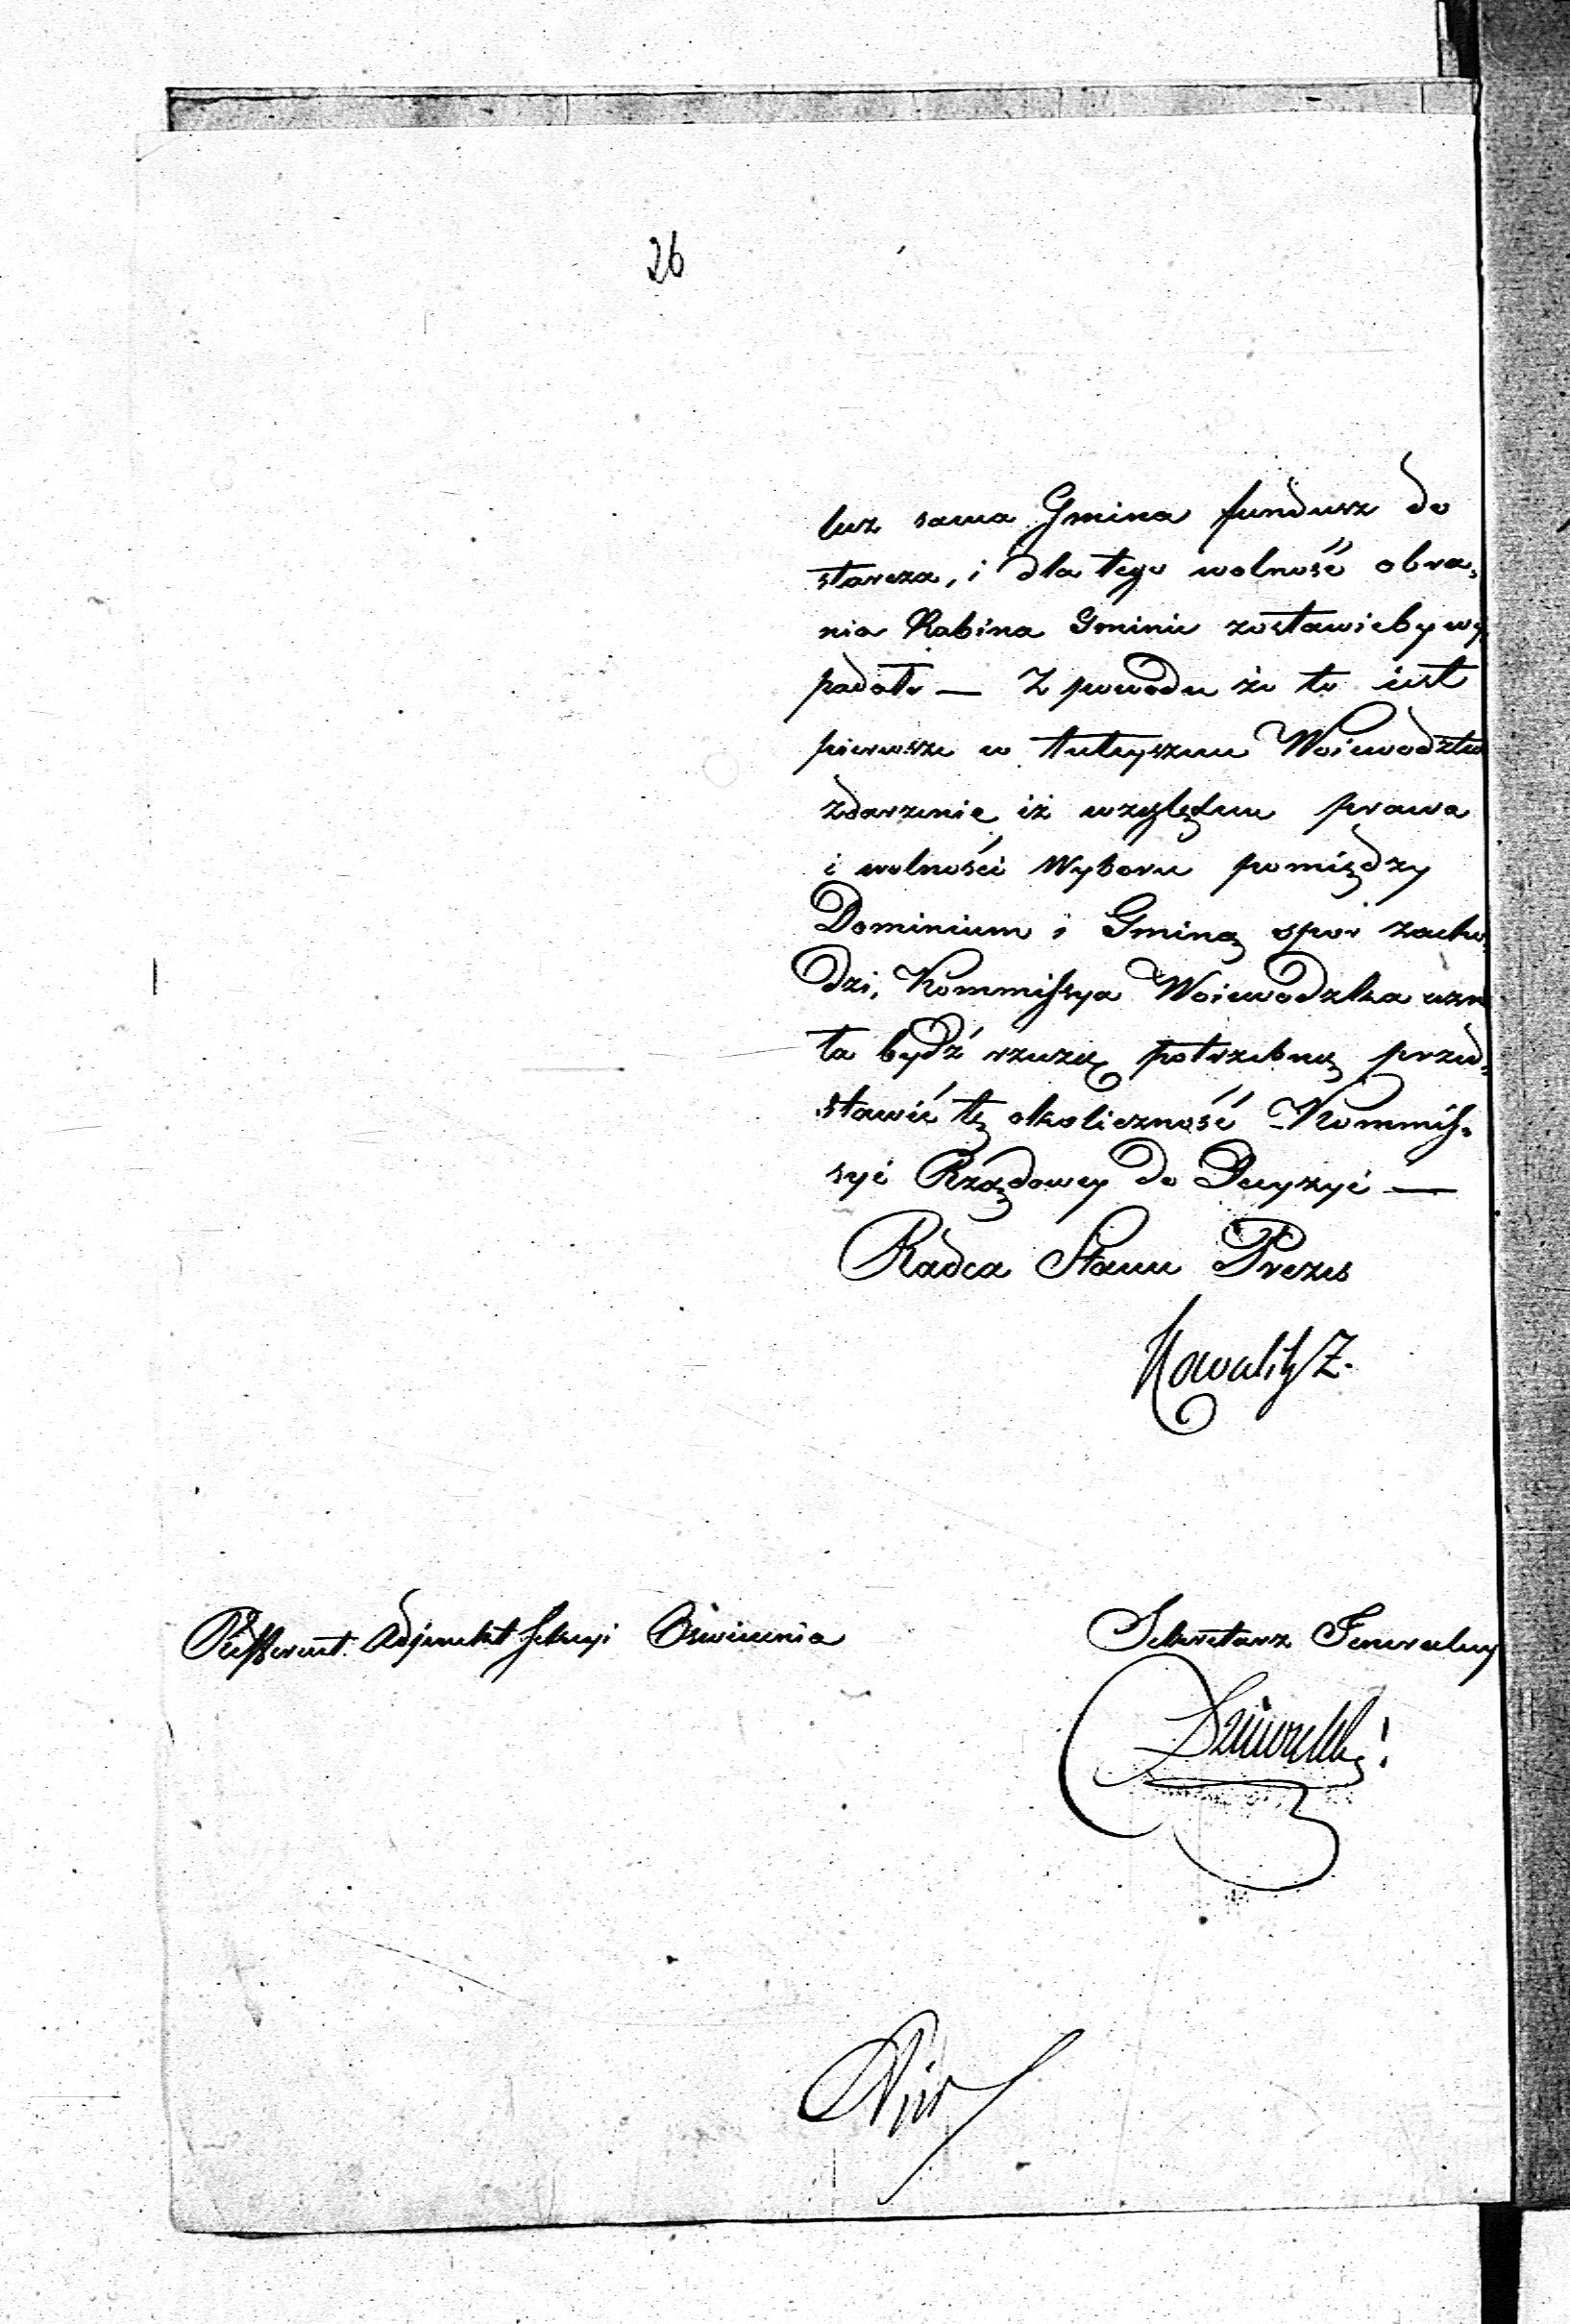 26
lecz sama Gmina fundusz do
starcza, i dla tego wolność obra-
nia Rabina Gminie zostawić by wy
padało — Z powodu że to iest
pierwsze w tuteyszem Woiewodztw
zdarzenie iż względem prawa
i wolności Wyboru pomiędzy
Dominium i Gminą spór zacho-
dzi, Kommissya Woiewodzka uzn
ła bydź rzeczą potrzebną przed-
stawić tę okoliczność Kommis-
syi Rządowey do Decyzyi —
Radca Stanu Prezes
Refferent Adjunkt Sekcyi Oświecenia
Sekretarz Generalny